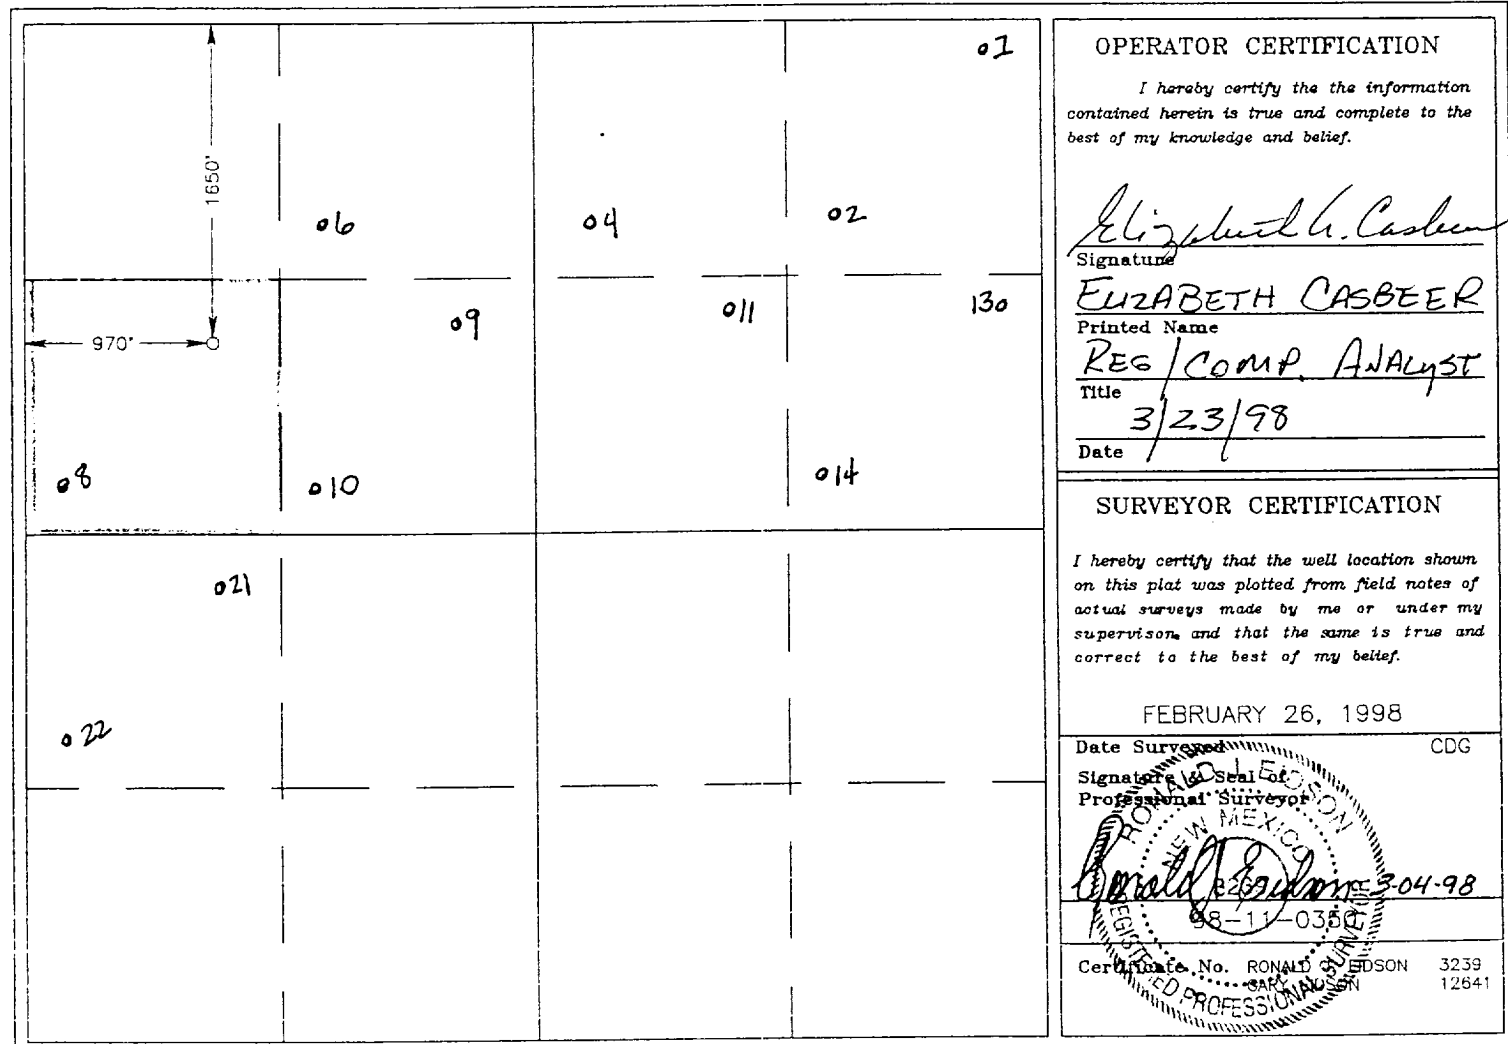 1650'
970'
o1
o6
o4
o2
o9
o11
13o
o8
o10
o14
o21
o22
OPERATOR CERTIFICATION
I hereby certify the the information
contained herein is true and complete to the
best of my knowledge and belief.
Elizabeth A. Casbeer
Signature
ELIZABETH CASBEER
Printed Name
REG/COMP. ANALYST
Title
3/23/98
Date
SURVEYOR CERTIFICATION
I hereby certify that the well location shown
on this plat was plotted from field notes of
actual surveys made by me or under my
supervison, and that the same is true and
correct to the best of my belief.
FEBRUARY 26, 1998
Date Surveyed CDG
Signature & Seal of
Professional Surveyor
RONALD J. EIDSON
NEW MEXICO
REGISTERED PROFESSIONAL SURVEYOR
Ronald J Eidson 3-04-98
98-11-0350
Certificate No. RONALD J. EIDSON 3239
GARY EIDSON 12641